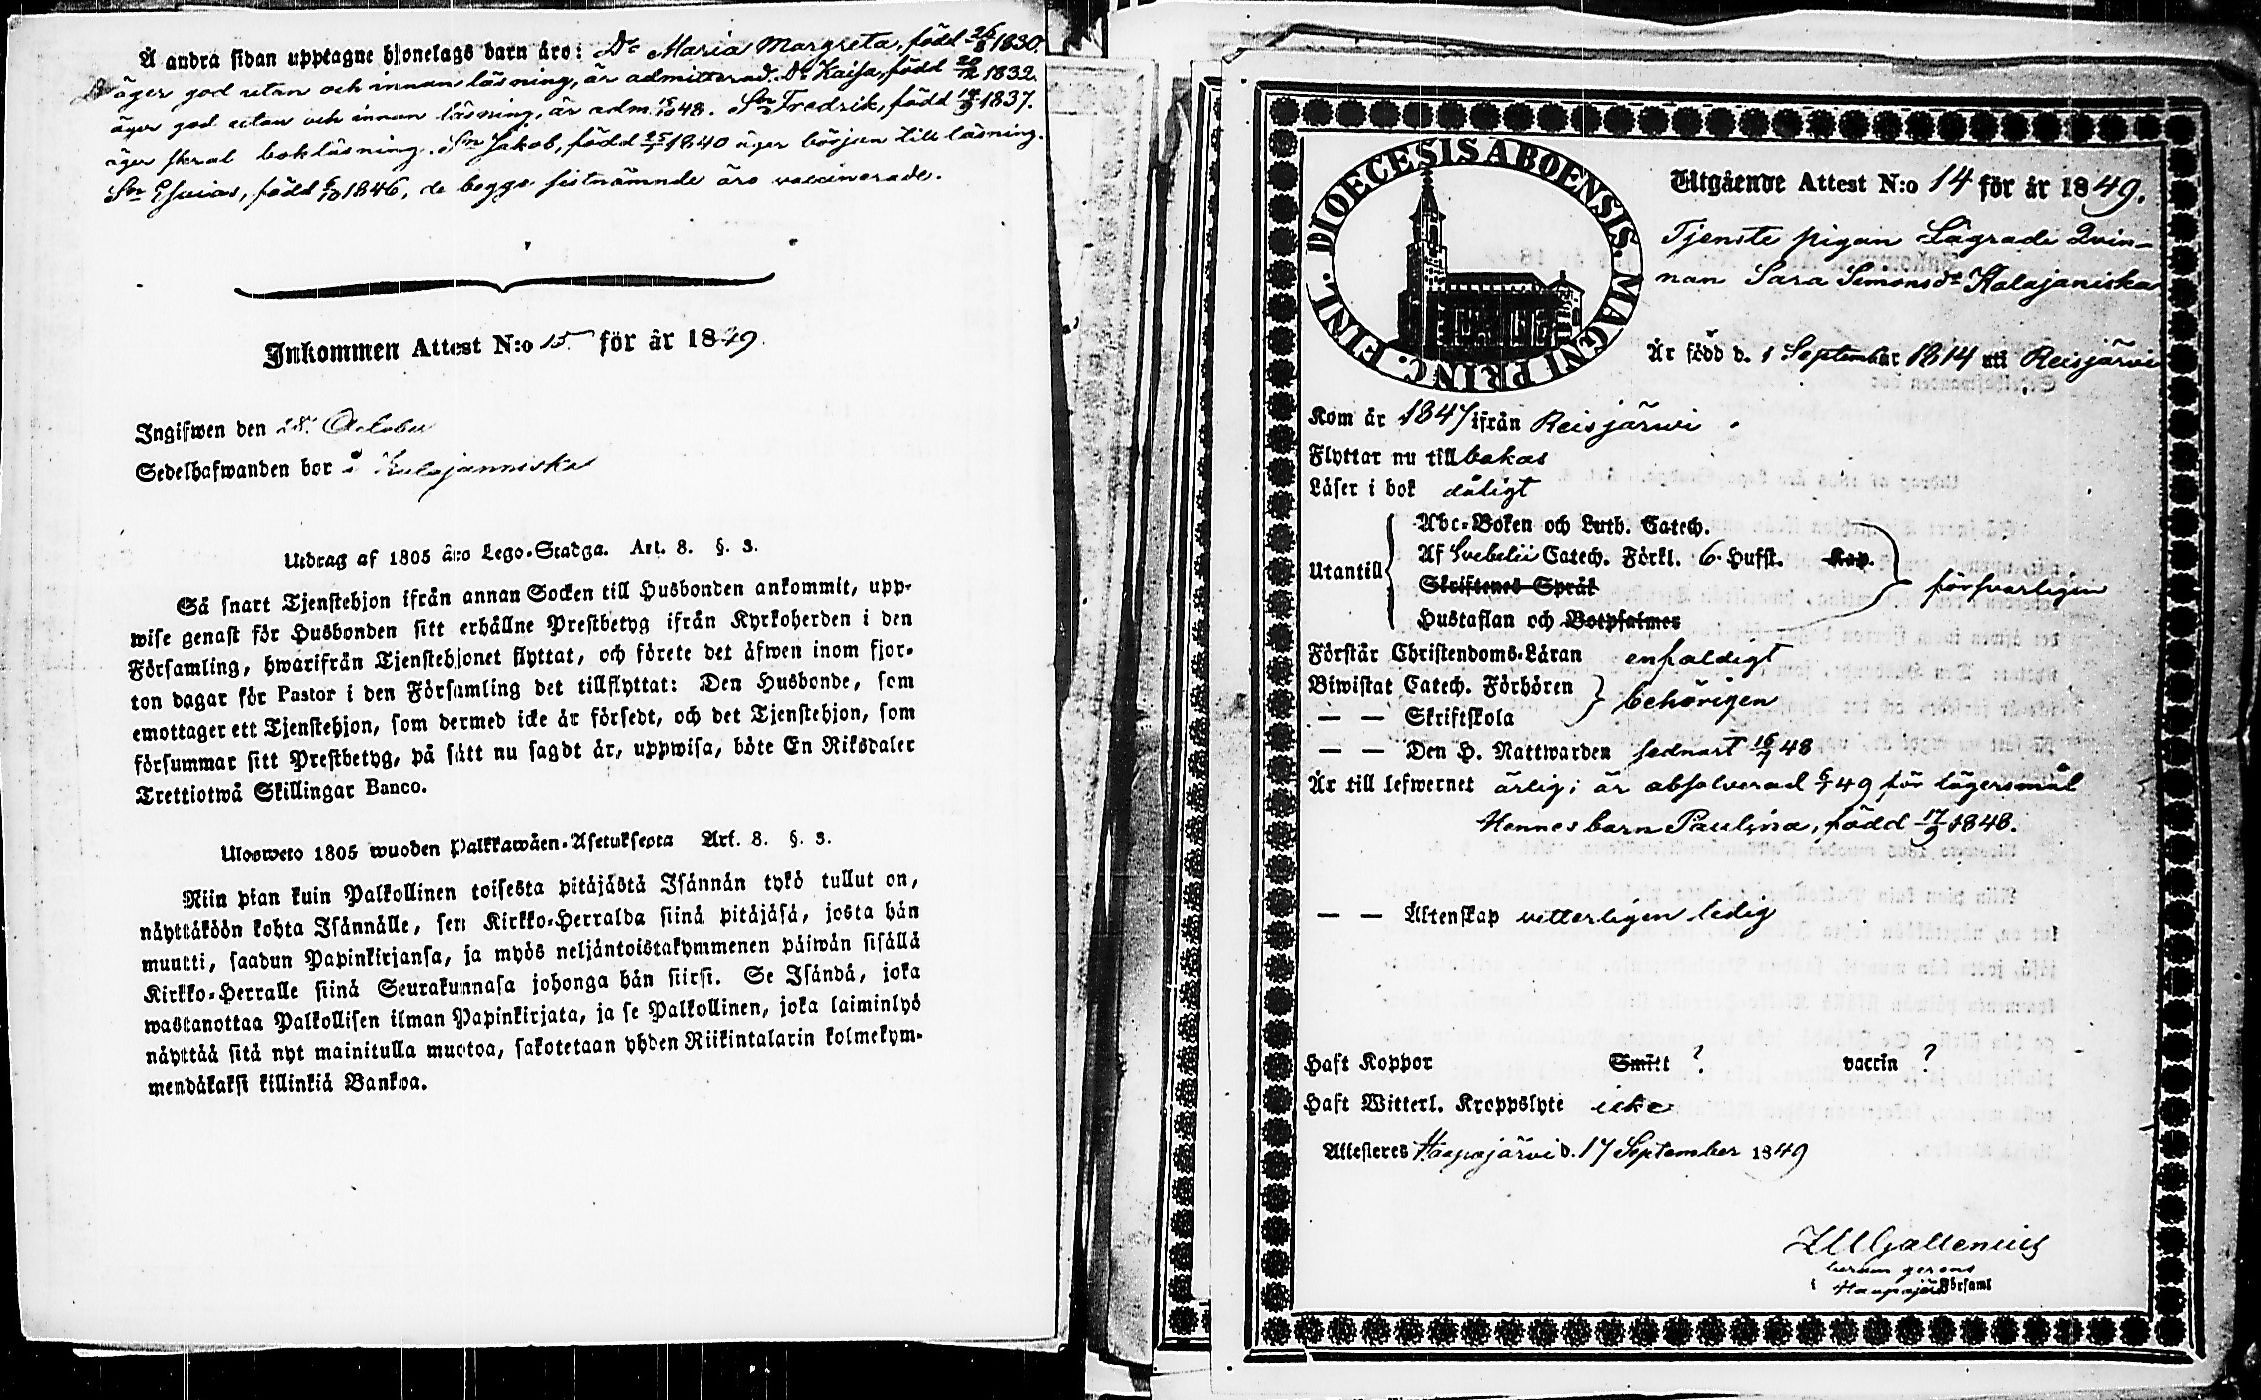 Å andra sidan upptagne hjonelags barn äro: Dr Maria Margreta, född 26/8 1830.
äger god utan och innan läsning, är admitterad. Dr Kaisa, född 1832.
äger god utan och innan läsning, är adm. 48. Sn Fredrik, född 1837.
äger skral bokläsning. Sn Jakob, född 1840 äger början till läsning.
Sn Esaias, född 1846, de begge sistnämnde äro vaccinerade.
Inkommen Attest N:o 15 för år 1849.
Ingifwen den 28 October
Sedelhafwanden bor å Kalajanniska
Utdrag af 1805 års Lego-Stadga. Art. 8. §. 3.
Så snart Tjenstehjon ifrån annan Socken till Husbonden ankommit, upp-
wise genast för Husbonden sitt erhållne Prestbetyg ifrån Kyrkoherden i den
Församling, hwarifrån Tjenstehjonet flyttat, och förete det äfwen inom fjor-
ton dagar för Pastor i den Församling det tillflyttat: Den Husbonde, som
emottager ett Tjenstehjon, som dermed icke är försedt, och det Tjenstehjon, som
försummar sitt Prestbetyg, på sätt nu sagdt är, uppwisa, böte En Riksdaler
Trettiotwå Skillingar Banco.
Ulosweto 1805 wuoden Palkkawäen-Asetuksesta Art. 8. §. 3.
Niin pian kuin Palkollinen toisesta pitäjästä Isännän tykö tullut on,
näyttäköön kohta Isännälle, sen Kirkko-Herralda siinä pitäjäsä, josta hän
muutti, saadun Papinkirjansa, ja myös neljäntoistakymmenen päiwän sisällä
Kirkko-Herralle siinä Seurakunnasa johonga hän siirsi. Se Isändä, joka
wastanottaa Palkollisen ilman Papinkirjata, ja se Palkollinen, joka laiminlyö
näyttää sitä nyt mainitulla muotoa, sakotetaan yhden Riikintalarin kolmekym-
mendäkaksi killinkiä Bankoa.
DIOECESIS ABOENSIS. MAGNI PRINC. FINL.
Utgående Attest N:o 14 för år 1849.
Tjenste pigan Lägrade Qvin-
nan Sara Simonsdr Kalajaniska
Är född d. 1 September 1814 uti Reisjärvi
Kom år 1847 ifrån Reisjärvi.
Flyttar nu tillbakas
Läser i bok dåligt
Utantill
Abc-Boken och Luth. Catech.
Af Svebelii Catech. Förkl. 6. Hufst. Kap.
Skriftenes Språk
Hustaflan och Botpsalmer
försvarligen
Förstår Christendoms-Läran enfaldigt
Biwistat Catech. Förhören
— — Skriftskola
behörigen
— — Den H. Nattwarden sednast 16/7 48
Är till lefwernet ärlig; är absolverad 6/1 49 för lägersmål
Hennes barn Paulina, född 17/9 1848.
— — Äktenskap vitterligen ledig
Haft Koppor Smitt ? vaccin ?
Haft Witterl. Kroppslyte icke
Attesteres Haapajärvi d. 17 September 1849
Gallenius
curam gerens
i Haapajärvi Församl